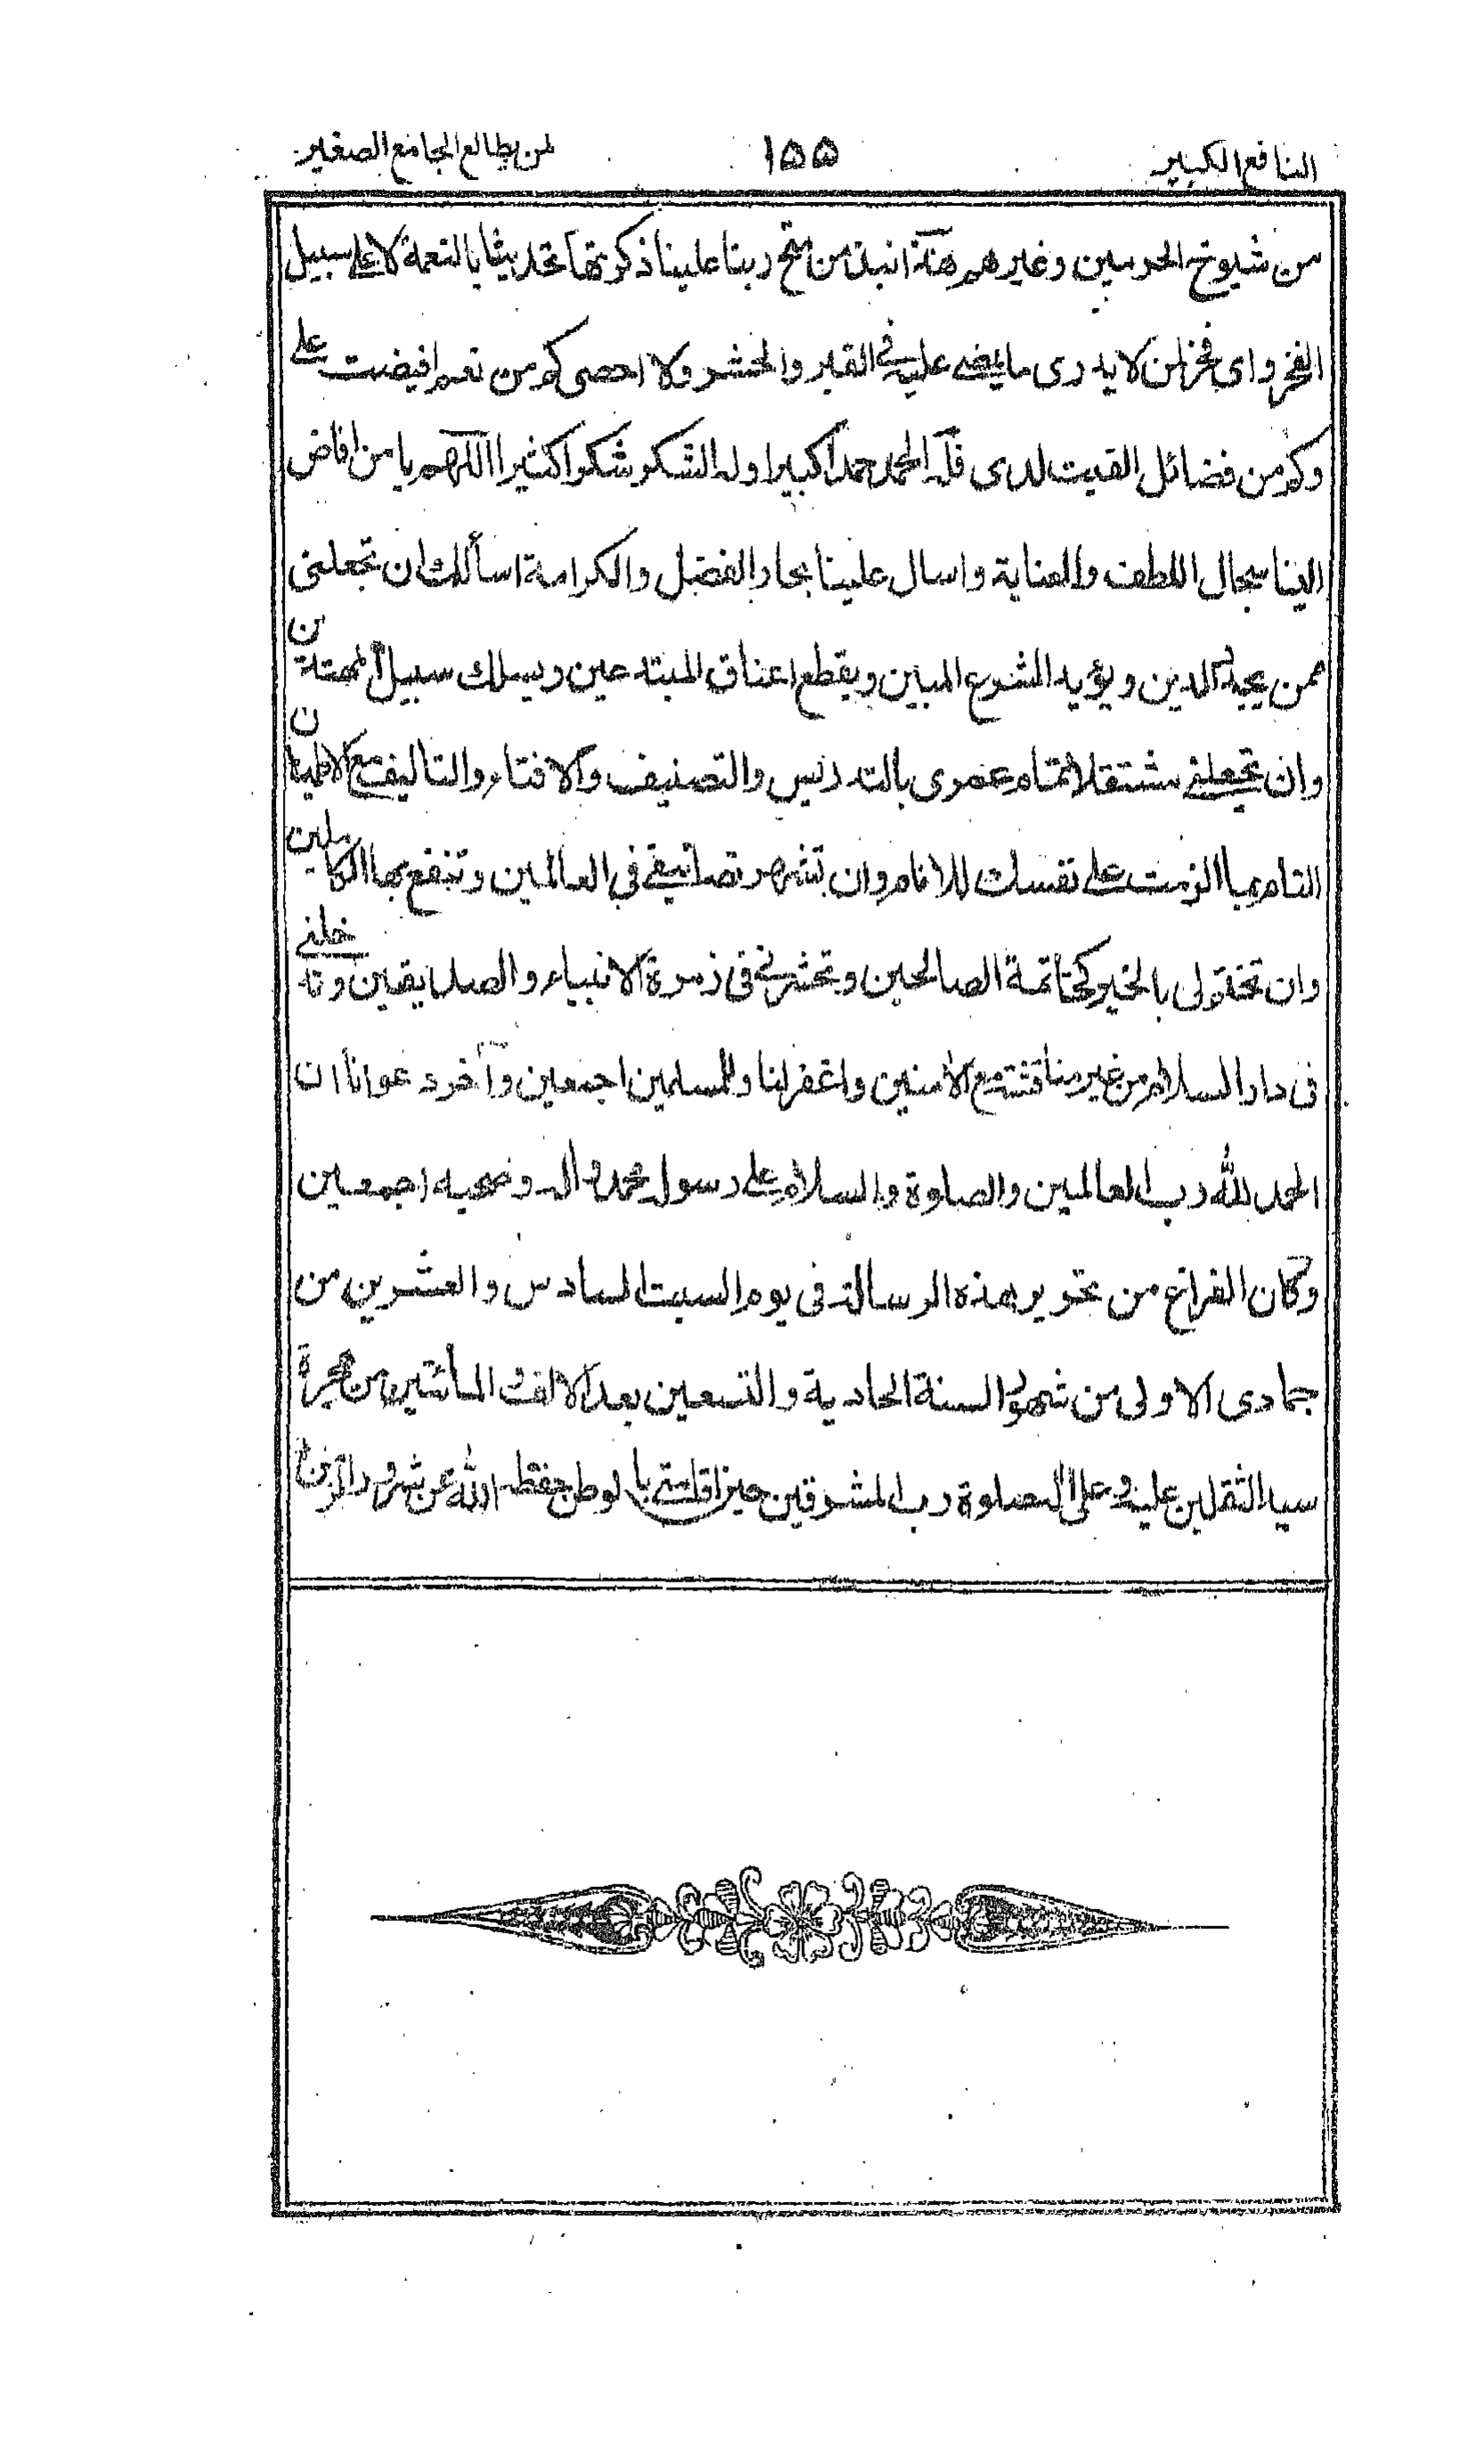 النافع الكبير ١٥٥ لمن يطالع الجامع الصغير
من شيوخ الحرمين وغيرهم هذه نبذة من منح ربنا علينا ذكرتها تحديثا بالنعمة لا على سبيل
الفخر واى فخر لمن لا يدرى ما يمضى عليه فى القبر والحشر ولا احصى كم من نعم افيضت على
وكم من فضائل القيت لدى فله الحمد حمدا كبيرا وله الشكر شكرا كثيرا اللهم يا من افاض
الينا سجال اللطف والعناية واسال علينا بحار الفضل والكرامة اسألك ان تجعلنى
ممن يجدد الدين ويؤيد الشرع المبين ويقطع اعناق المبتدعين ويسلك سبيل المهتدين
وان تجعلنى مشتغلا تمام عمرى بالتدريس والتصنيف والافتاء والتاليف مع الاطمينان
التام بما الزمت على نفسك للانام وان تشهر تصانيفى فى العالمين وتنفع بها الكاملين
وان تختم لى بالخير كخاتمة الصالحين وتحشرنى فى زمرة الانبياء والصديقين وتدخلنى
فى دار السلام من غير مناقشة مع الآمنين واغفر لنا وللمسلمين اجمعين وآخر دعوانا ان
الحمد لله رب العالمين والصلوة والسلام على رسوله محمد واله وصحبه اجمعين
وكان الفراغ من تحرير هذه الرسالة فى يوم السبت السادس والعشرين من
جمادى الاولى من شهور السنة الحادية والتسعين بعد الالف والمأتين من هجرة
سيد الثقلين عليه وعلى اله صلوة رب المشرقين حين اقامتى بالوطن حفظه الله عن شرور الزمن